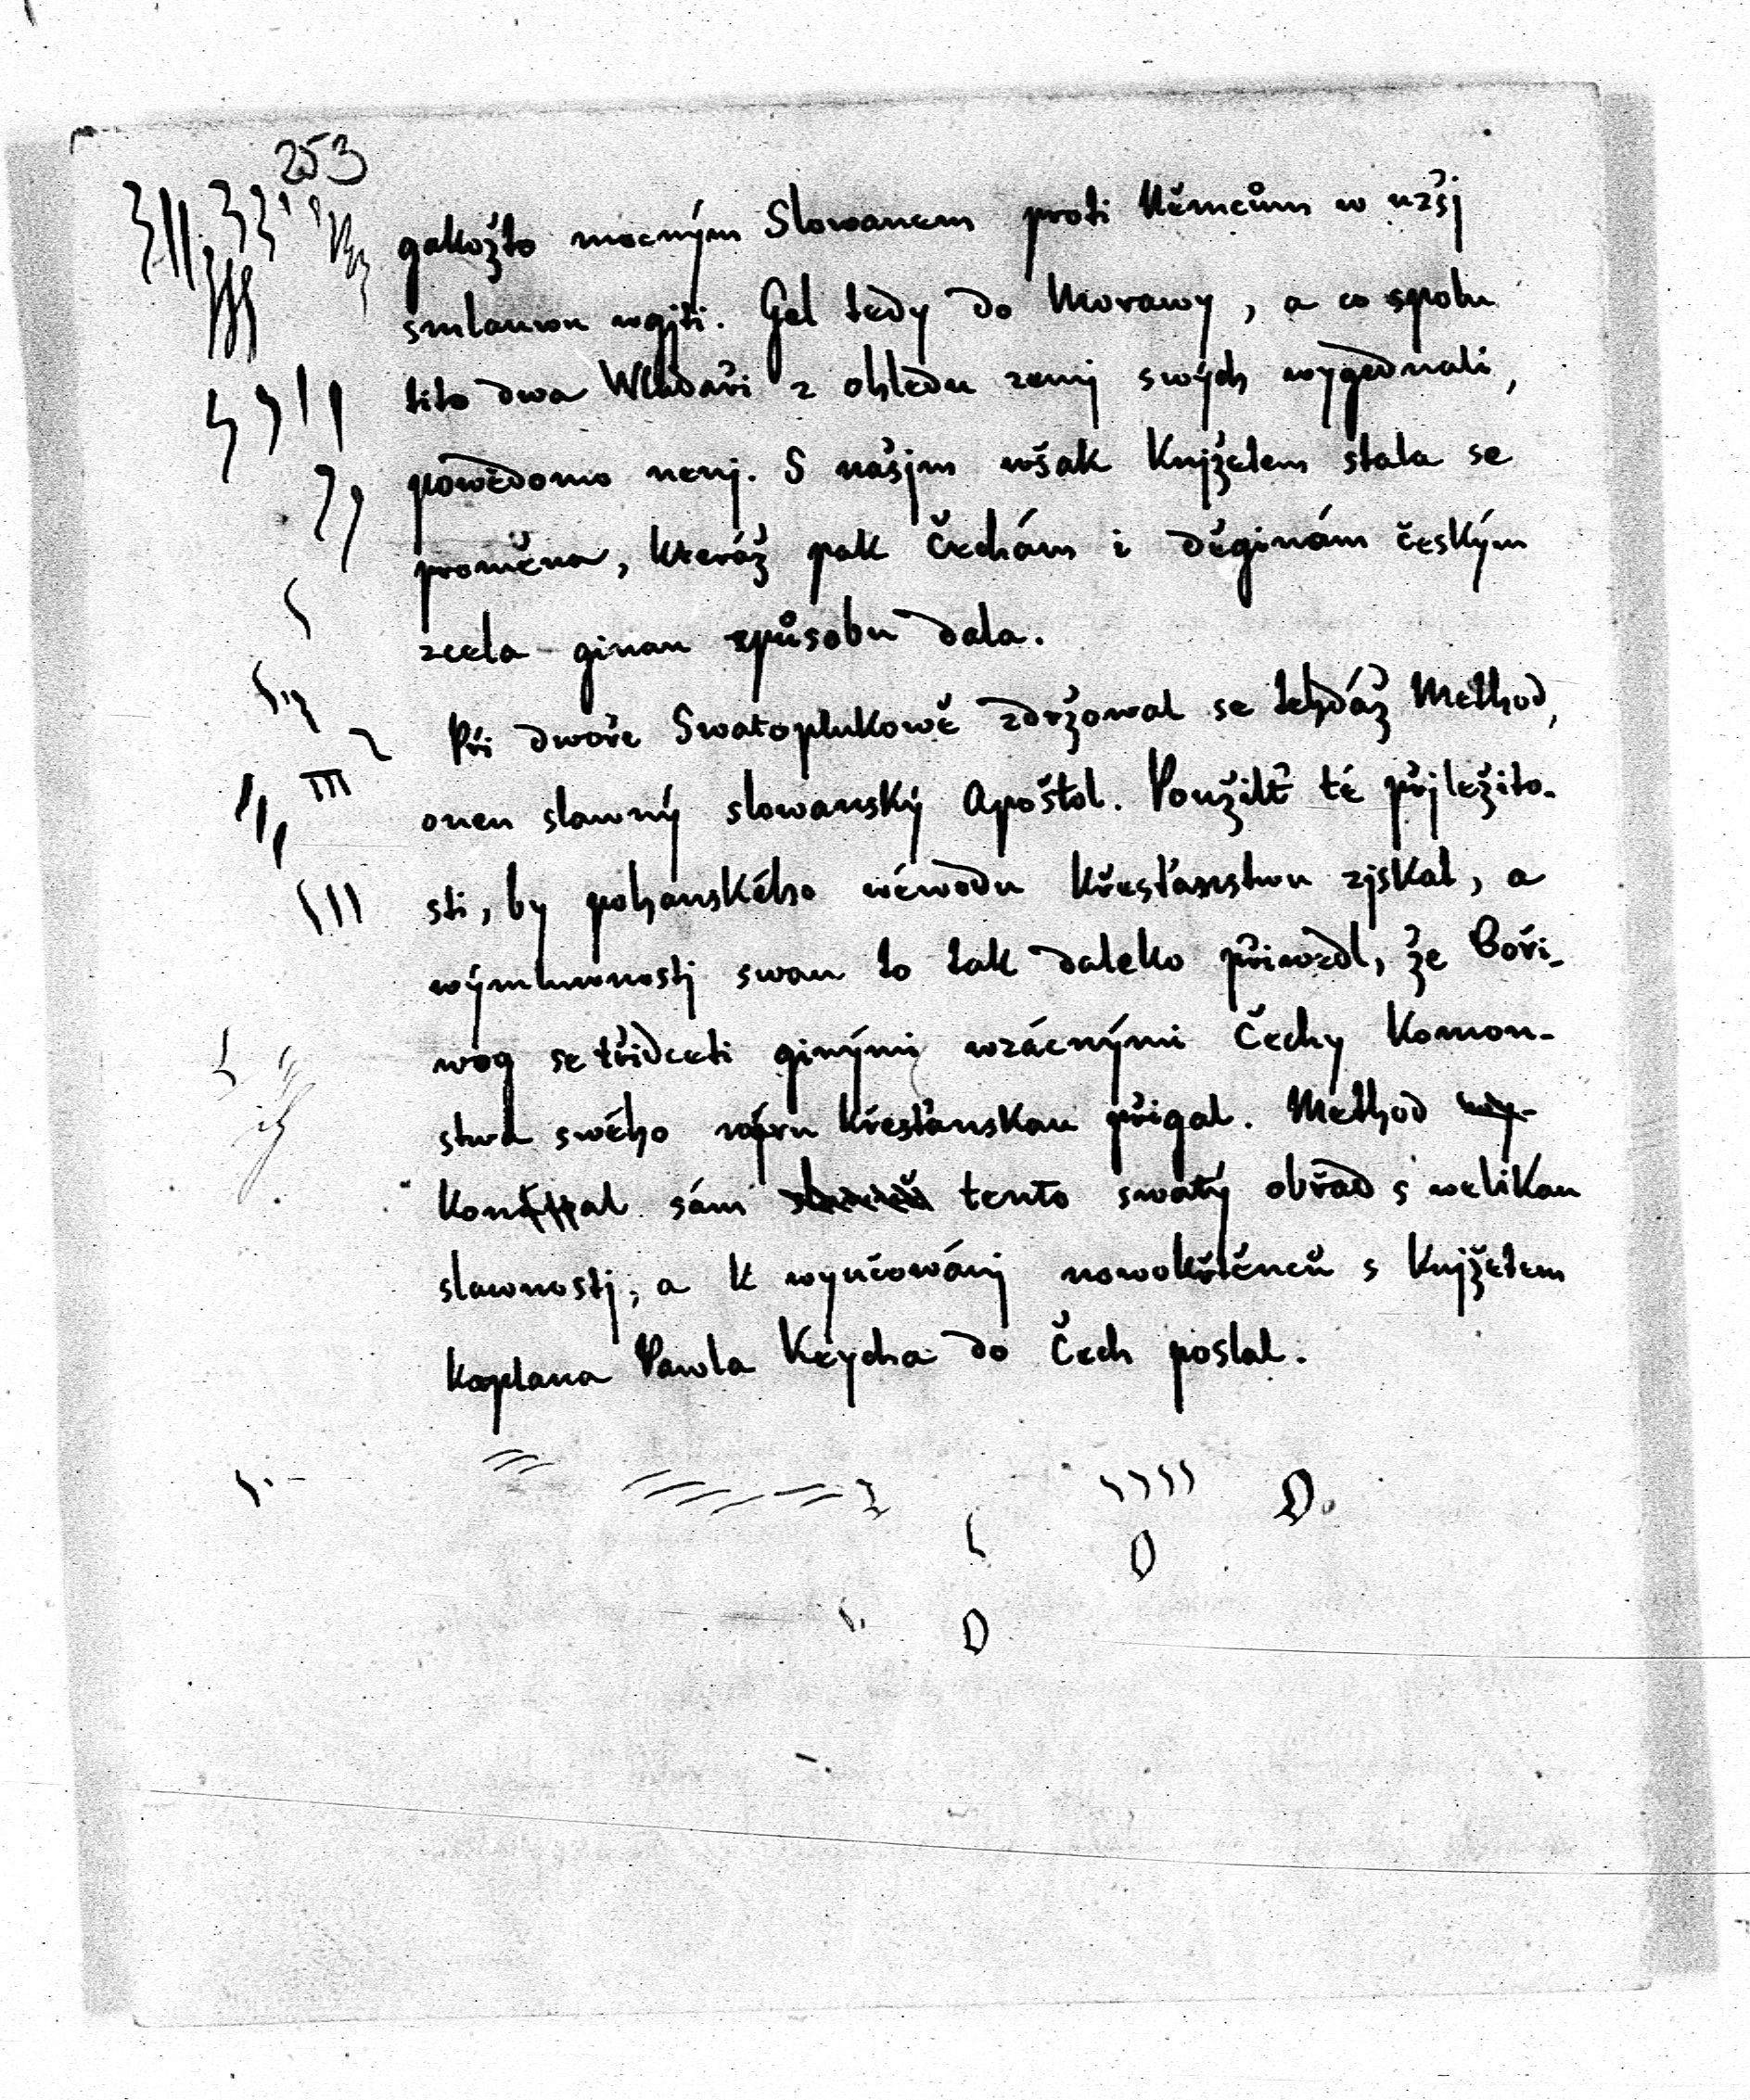 253
gakožto mocným Slowanem proti Němcům w užšj
smlauwu wgjti. Gel tedy do Morawy, a co spolu
tito dwa Wladaři z ohledu zemj swých wygednali,
powědomo nenj. S našjm wšak Knjžetem stala se
proměna, kteráž pak Čechám i děginám českým
zcela ginau způsobu dala.
Při dwoře Swatoplukowě zdržowal se tehdáž Method,
onen slawný slowanský Apoštol. Použilť té přjležito-
sti, by pohanského wéwodu křesťanstwu zjskal, a
wýmluwnostj swau to tak daleko přiwedl, že Boři-
wog se třidceti ginými wzácnými Čechy komon-
stwa swého wjru křesťanskau přigal. Method
konal sám tento swatý obřad s welikau
slawnostj, a k wyučowánj nowokřtěnců s Knjžetem
kaplana Pawla Keycha do Čech poslal.